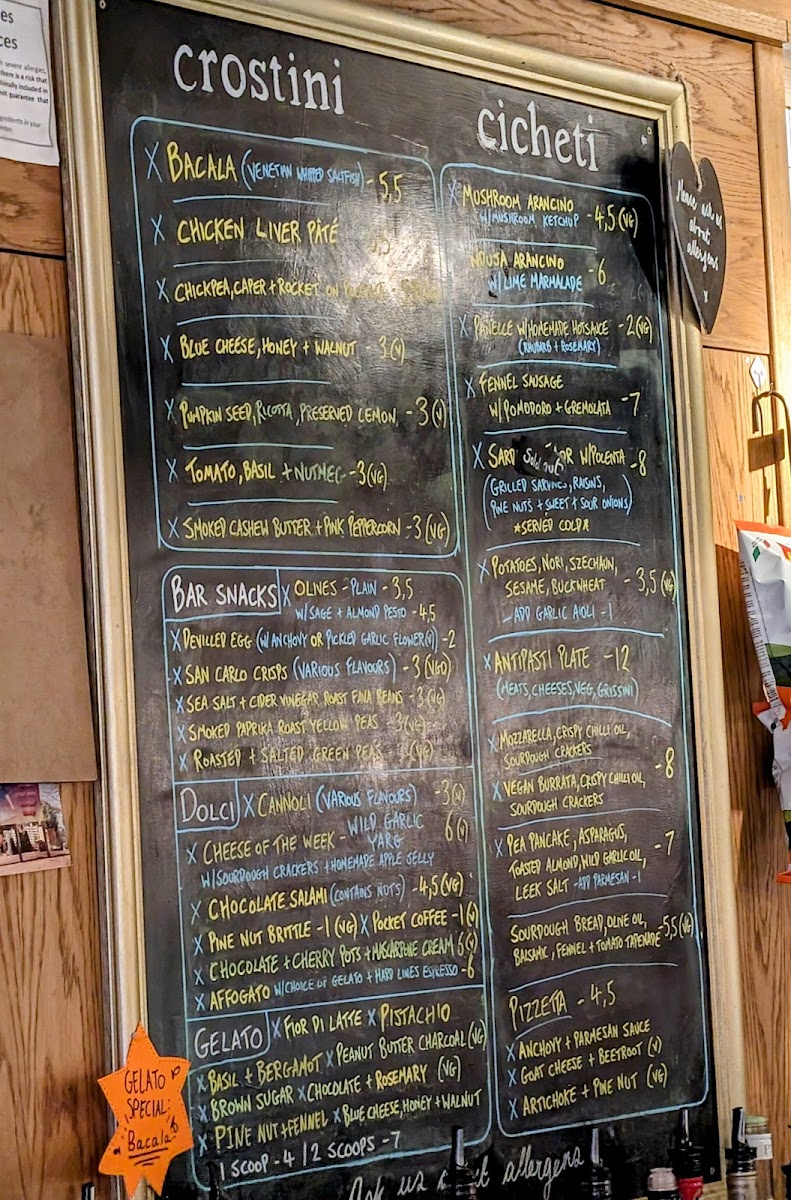 es
ces
h severe allergies,
there is a risk that
ionally included in
not guarantee that
gredients in your
crostini
X BACALA (VENETIAN WHIPPED SALTFISH) - 5,5
X CHICKEN LIVER PÂTÉ
X CHICKPEA, CAPER + ROCKET ON
X BLUE CHEESE, HONEY + WALNUT - 3 (V)
X PUMPKIN SEED, RICOTTA, PRESERVED LEMON - 3 (V)
X TOMATO, BASIL + NUTMEG - 3 (VG)
X SMOKED CASHEW BUTTER + PINK PEPPERCORN - 3 (VG)
BAR SNACKS X OLIVES - PLAIN - 3,5
W/SAGE + ALMOND PESTO - 4,5
X DEVILLED EGG (W/ANCHOVY OR PICKLED GARLIC FLOWER (V)) - 2
X SAN CARLO CRISPS (VARIOUS FLAVOURS) - 3 (VGO)
X SEA SALT + CIDER VINEGAR ROAST FAVA BEANS - 3 (VG)
X SMOKED PAPRIKA ROAST YELLOW PEAS - 3 (VG)
X ROASTED + SALTED GREEN PEAS - 3 (VG)
DOLCI X CANNOLI (VARIOUS FLAVOURS) - 3 (V)
X CHEESE OF THE WEEK - WILD GARLIC YARG 6 (V)
W/SOURDOUGH CRACKERS + HOMEMADE APPLE JELLY
X CHOCOLATE SALAMI (CONTAINS NUTS) - 4,5 (VG)
X PINE NUT BRITTLE - 1 (VG) X POCKET COFFEE - 1 (V)
X CHOCOLATE + CHERRY POTS + MASCARPONE CREAM 6 (V)
X AFFOGATO W/CHOICE OF GELATO + HARD LINES ESPRESSO - 6
GELATO X FIOR DI LATTE X PISTACHIO
X BASIL + BERGAMOT X PEANUT BUTTER CHARCOAL (VG)
X BROWN SUGAR X CHOCOLATE + ROSEMARY (VG)
X PINE NUT + FENNEL X BLUE CHEESE, HONEY + WALNUT
1 SCOOP - 4 / 2 SCOOPS - 7
cicheti
X MUSHROOM ARANCINO
W/MUSHROOM KETCHUP - 4,5 (VG)
NDUJA ARANCINO
W/LIME MARMALADE - 6
X PANELLE W/HOMEMADE HOTSAUCE - 2 (VG)
(RHUBARB + ROSEMARY)
X FENNEL SAUSAGE
W/POMODORO + GREMOLATA - 7
X SARD Sold out OR W/POLENTA - 8
(GRILLED SARDINES, RAISINS,
PINE NUTS + SWEET + SOUR ONIONS)
*SERVED COLD*
X POTATOES, NORI, SZECHAUN,
SESAME, BUCKWHEAT - 3,5 (VG)
- ADD GARLIC AIOLI - 1
X ANTIPASTI PLATE - 12
(MEATS, CHEESES, VEG, GRISSINI)
X MOZZARELLA, CRISPY CHILLI OIL,
SOURDOUGH CRACKERS
- 8
X VEGAN BURRATA, CRISPY CHILLI OIL,
SOURDOUGH CRACKERS
X PEA PANCAKE, ASPARAGUS,
TOASTED ALMOND, WILD GARLIC OIL, - 7
LEEK SALT - ADD PARMESAN - 1
SOURDOUGH BREAD, OLIVE OIL,
BALSAMIC, FENNEL + TOMATO TAPENADE - 5,5 (VG)
PIZZETTA - 4,5
X ANCHOVY + PARMESAN SAUCE
X GOAT CHEESE + BEETROOT (V)
X ARTICHOKE + PINE NUT (VG)
Please ask us
about
allergens
x
GELATO
SPECIAL:
Bacala
Ask us allergens